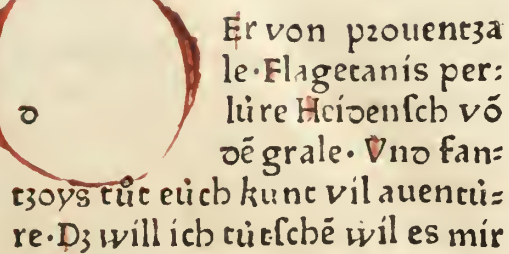 Er von prouentza
le·Flagetanis per⸗
lúre Heidensch vō
d dē grale· Vnd fan⸗
tzoys tůt eúch kunt vil auentú⸗
re·Dz will ich tútschē wil es mir